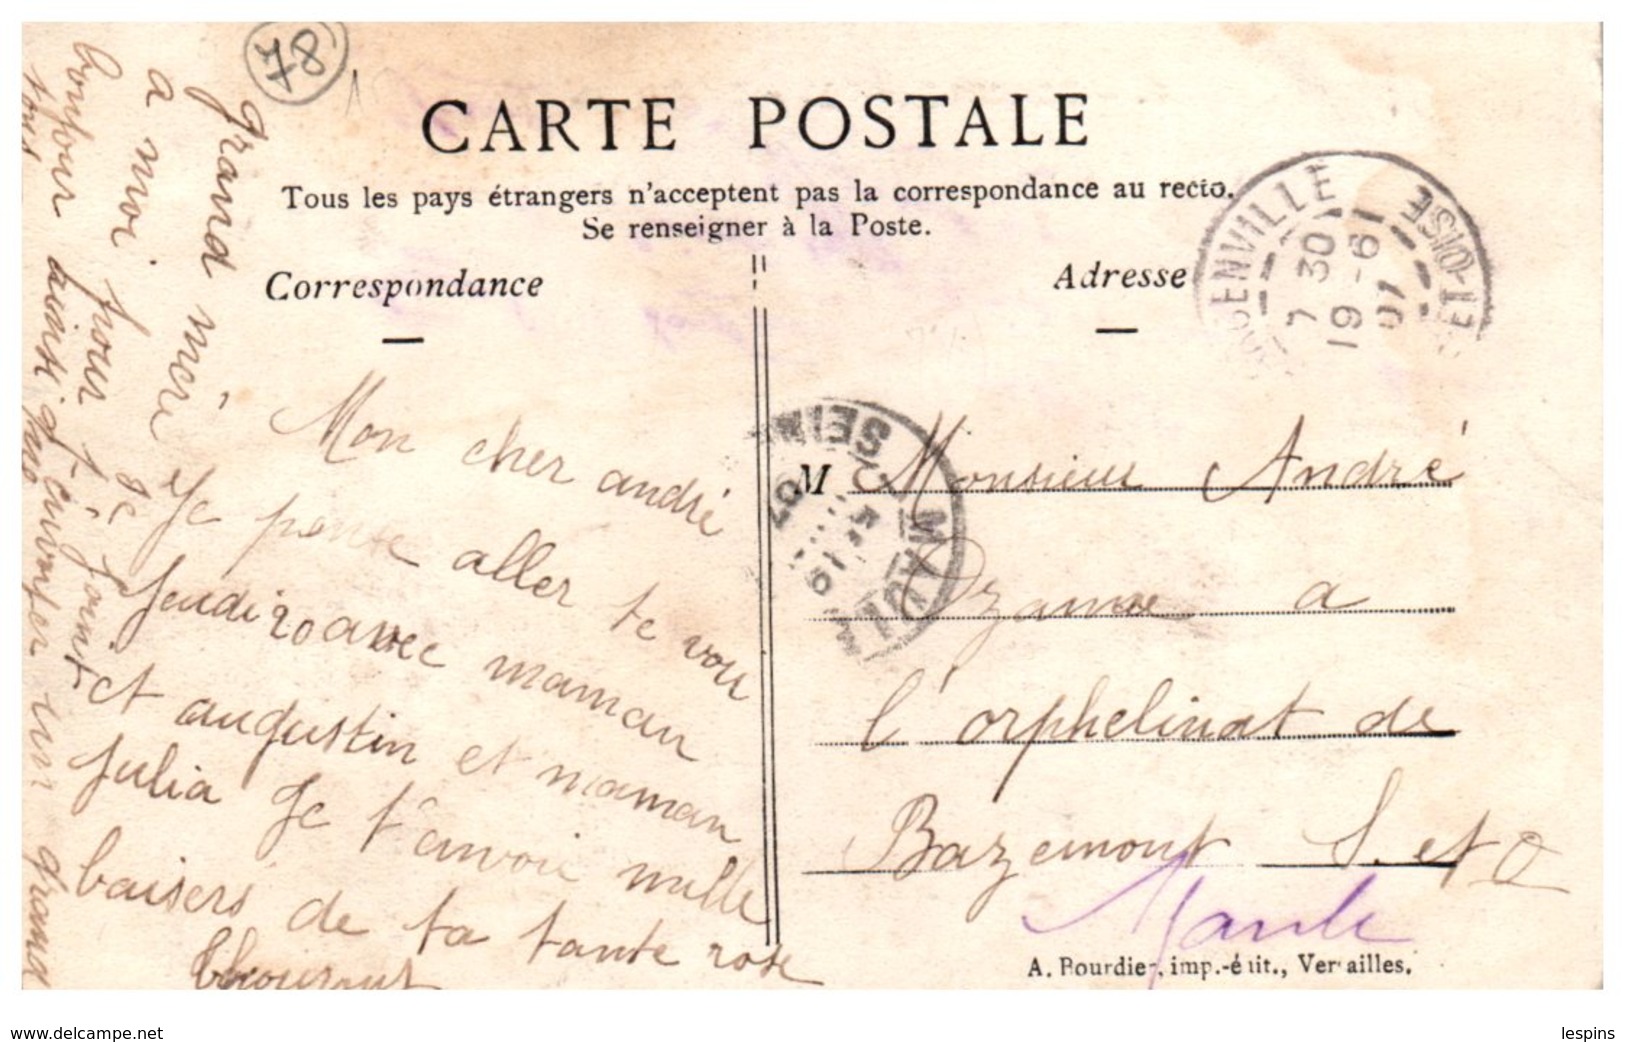 78
CARTE POSTALE
Tous les pays étrangers n'acceptent pas la correspondance au recto.
Se renseigner à la Poste.
Correspondance
Adresse
ENVILLE
ET-OISE
7 30
19 -6
07
MAULE
SEINE
19
07
Mon cher andré
Je pense aller te voir
Jeudi 20 avec maman
et augustin et maman
julia Je t'envoie mille
baisers de ta tante rose
grand mère
a moi pour
bonjour ainsi
tous
Je joint
t'envoyer un grand
M Monsieur André
Ozanne a
l'orphelinat de
Bazemont S. et O
Maule
A. Bourdier, imp.-édit., Versailles.
www.delcampe.net
lespins